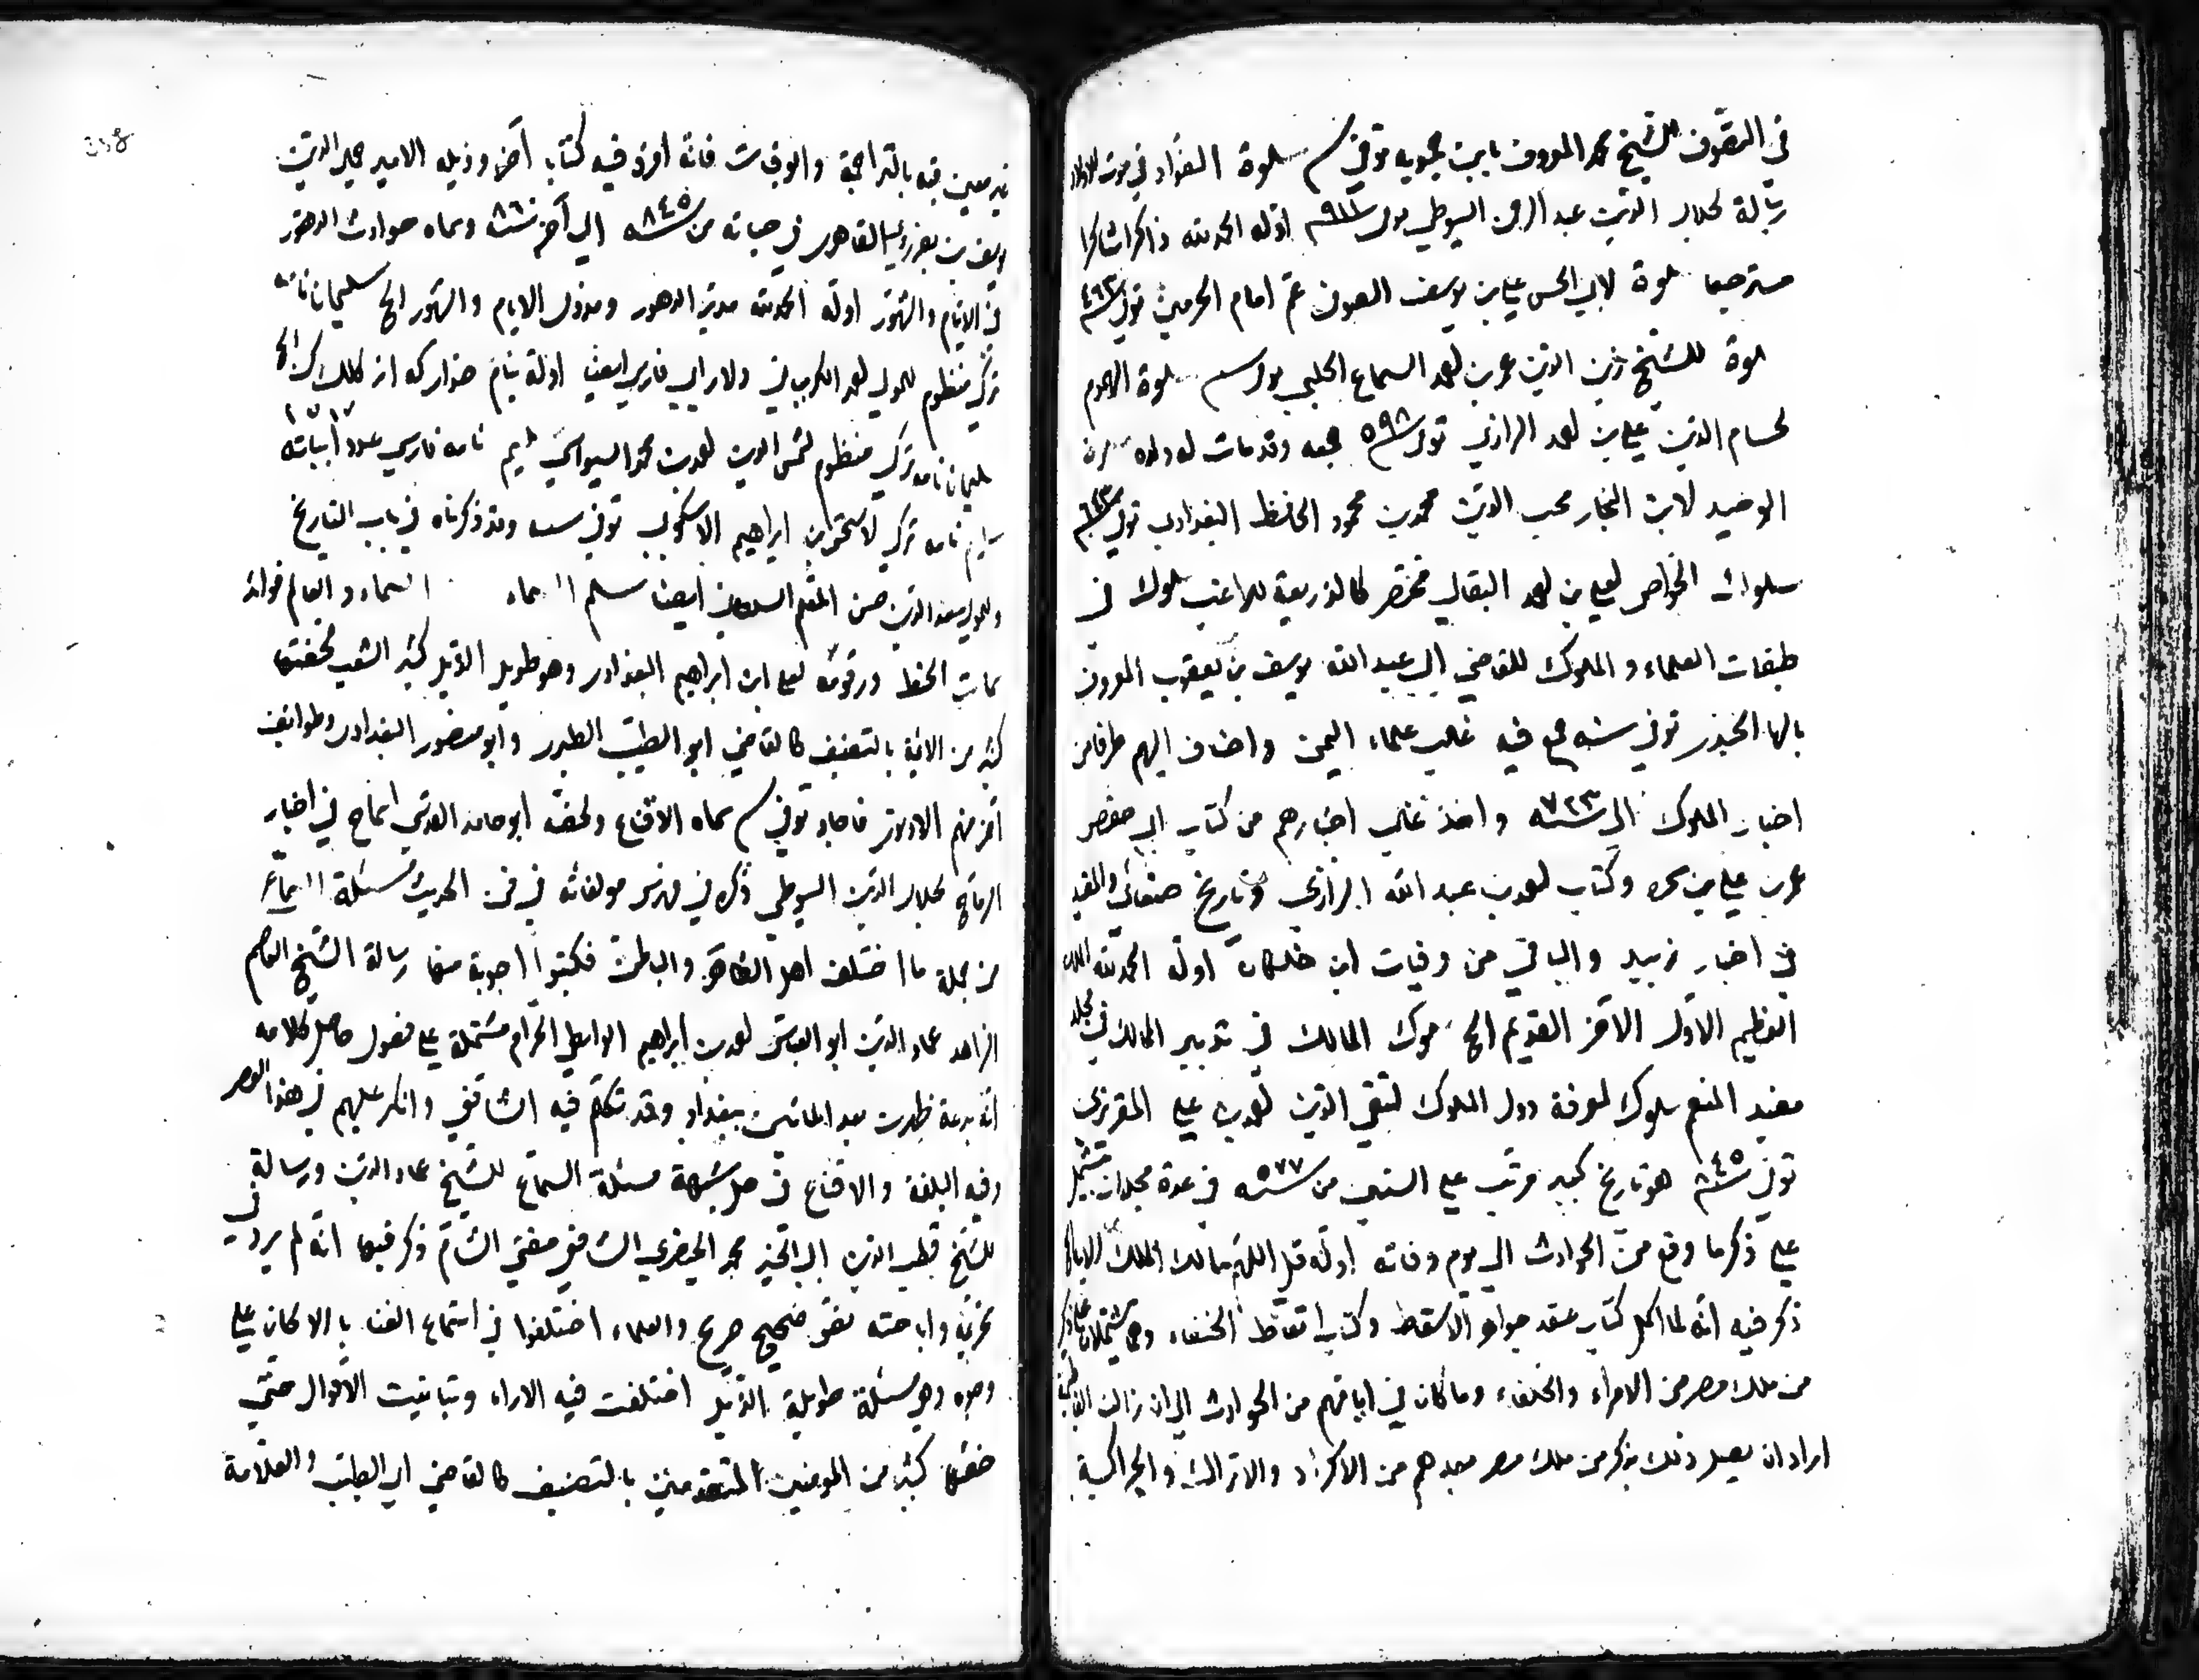 في التصوف للشيخ محمد المعروف بابن حمويه توفي سنه سلوة الفؤاد في موت الاولاد
رسالة لجلال الدين عبد الرحمن السيوطي توفى سنة ٩١١ اوله الحمد لله ذاكرا شاكرا
مسترجعا سلوة لابي الحسن علي بن يوسف الصوفى عم امام الحرمين توفى سنة ٤٦٣
سلوة للشيخ زين الدين عمر بن احمد السماع الحلبي توفى سنه سلوة الهموم
لحسام الدين علي بن احمد الرازي توفى سنة ٥٩٨ جمعه وقد مات له ولده
الوحيد لابن النجار محب الدين محمد بن محمود الحافظ البغدادي توفى سنة ٦٤٣
سلوان الخواص لعلي بن احمد البقالي مختصر كالذريعة للراغب سلوك في
طبقات العلماء و الملوك للقاضي ابي عبد الله يوسف بن يعقوب المعروف
بالبها الجندي توفي سنه جمع فيه غالب علماء اليمن واضاف اليهم طرفا من
اخبار الملوك الى سنة ٧٢٣ واخذ غالب اخبارهم من كتاب ابي حفص
عمر بن علي بن سمره وكتاب احمد بن عبد الله الرازي وتاريخ صنعائي والمفيد
في اخبار زبيد والباقي من وفيات ابن خلكان اوله الحمد لله الملك
العظيم الاول الآخر القديم الخ سلوك المالك في تدبير الممالك في مجلد
مفيد المنعم سلوك لمعرفة دول الملوك لتقي الدين احمد بن علي المقريزي
توفي سنة ٨٤٥ هو تاريخ كبير مرتب على السنين من سنة ٥٧٧ في عدة مجلدات يشتمل
على ذكر ما وقع من الحوادث الى يوم وفاته اوله قل اللهم مالك الملك الاية الخ
ذكر فيه انه لما اكمل كتاب عقد جواهر الاسقاط وكتاب اتعاظ الخنفاء وهما يشتملان على ذكر
من ملك مصر من الامراء والخلفاء وما كان في ايامهم من الحوادث الى ان زالت الفاطمية
اراد ان يصل ذلك بذكر من ملك مصر بعدهم من الاكراد والاتراك والجراكسة
غير معين فيه بالتراجم والوفيات فانه افرد فيه كتابا آخر وذيله الامير جمال الدين
يوسف بن تغري بردي القاهري في حياته من سنة ٨٤٥ الى آخر سنة ٨٦٠ وسماه حوادث الدهور
في الايام والشهور اوله الحمد لله مدبر الدهور ومدول الايام والشهور الخ سليمان نامه
تركي منظوم للمولى احمد الكرمياني ولاراني فارسي ايضا اوله بنام خداركه از كلك كن الخ
سليمان نامه تركي منظوم لشمس الدين احمد بن محمد السيواسي سليم نامه فارسي عدد ابياته ١٥١٧
سليم نامه تركي لاسحق بن ابراهيم الاسكوبي توفي سنه وقد ذكرناه في باب التاريخ
وللمولى سعد الدين حسن المعلم السلطاني ايضا سلم السماء السماء و العالم فوائد
سمات الخط ورقومه لعلي ابن ابراهيم البغدادي وهو طويل الذيل كثير الشعب لخصتها
كثير من الائمة بالتصنيف كالقاضي ابو الطيب الطبري وابو منصور البغدادي وطوايف
آخرمنهم الادفوى فاجاد توفي سنه سماه الاقناع ولخصه ابو حامد المقدسي السماح في اخبار
الرماح لجلال الدين السيوطي ذكره في فهرس مولفاته في فن الحديث مسئلة السماع
من جملة ما اختلف اهل الظاهر والباطن فكتبوا اجوبة منها رسالة الشيخ العالم
الزاهد عماد الدين ابو العباس احمد بن ابراهيم الواسطي الحزام مشتملة على فصول حاصل كلامه
انه بدعة ظهرت بعد المائتين ببغداد وقد تكلم فيه الشافعي وانكر عليهم في هذا العصر
وفيه البلغة والاقناع في حل شبهة مسئلة السماع للشيخ عماد الدين ورسالة في
للشيخ قطب الدين ابي الخير محمد الخيضري الشافعي مفتي الشام ذكر فيها انه لم يرد في
تحريمه واباحته نص صحيح صريح والعلماء اختلفوا في استماع الغناء بالالحان على
وجوه وهي مسئلة طويلة الذيل اختلفت فيه الاراء وتباينت الاقوال حتى
خصها كثير من المؤمنين المتقدمين بالتصنيف كالقاضي ابي الطيب والعلامة